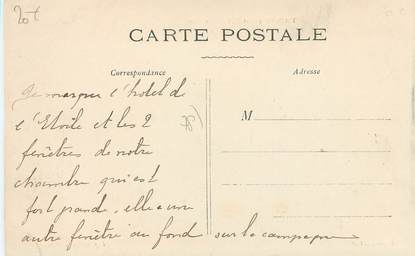 20f
CARTE POSTALE
Correspondance
Adresse
Je marque l'hotel de
l'Etoile et les 2
fenêtres de notre
chambre qui est
fort grande, elle a une
autre fenêtre au fond sur la campagne
M